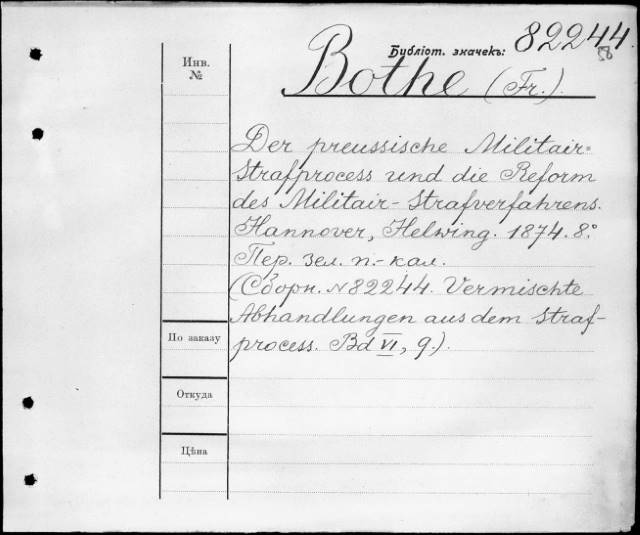 Библіот. значекъ: 82244.
58
Инв.
№
Bothe (Fr.).
Der preussische Militair-
Strafprocess und die Reform
des Militair-Strafverfahrens.
Hannover, Helwing. 1874. 8.°
Пер. зел. п.-кал.
(Сборн. №82244. Vermischte
Abhandlungen aus dem Straf-
process. Bd VI, 9.).
По заказу
Откуда
Цѣна